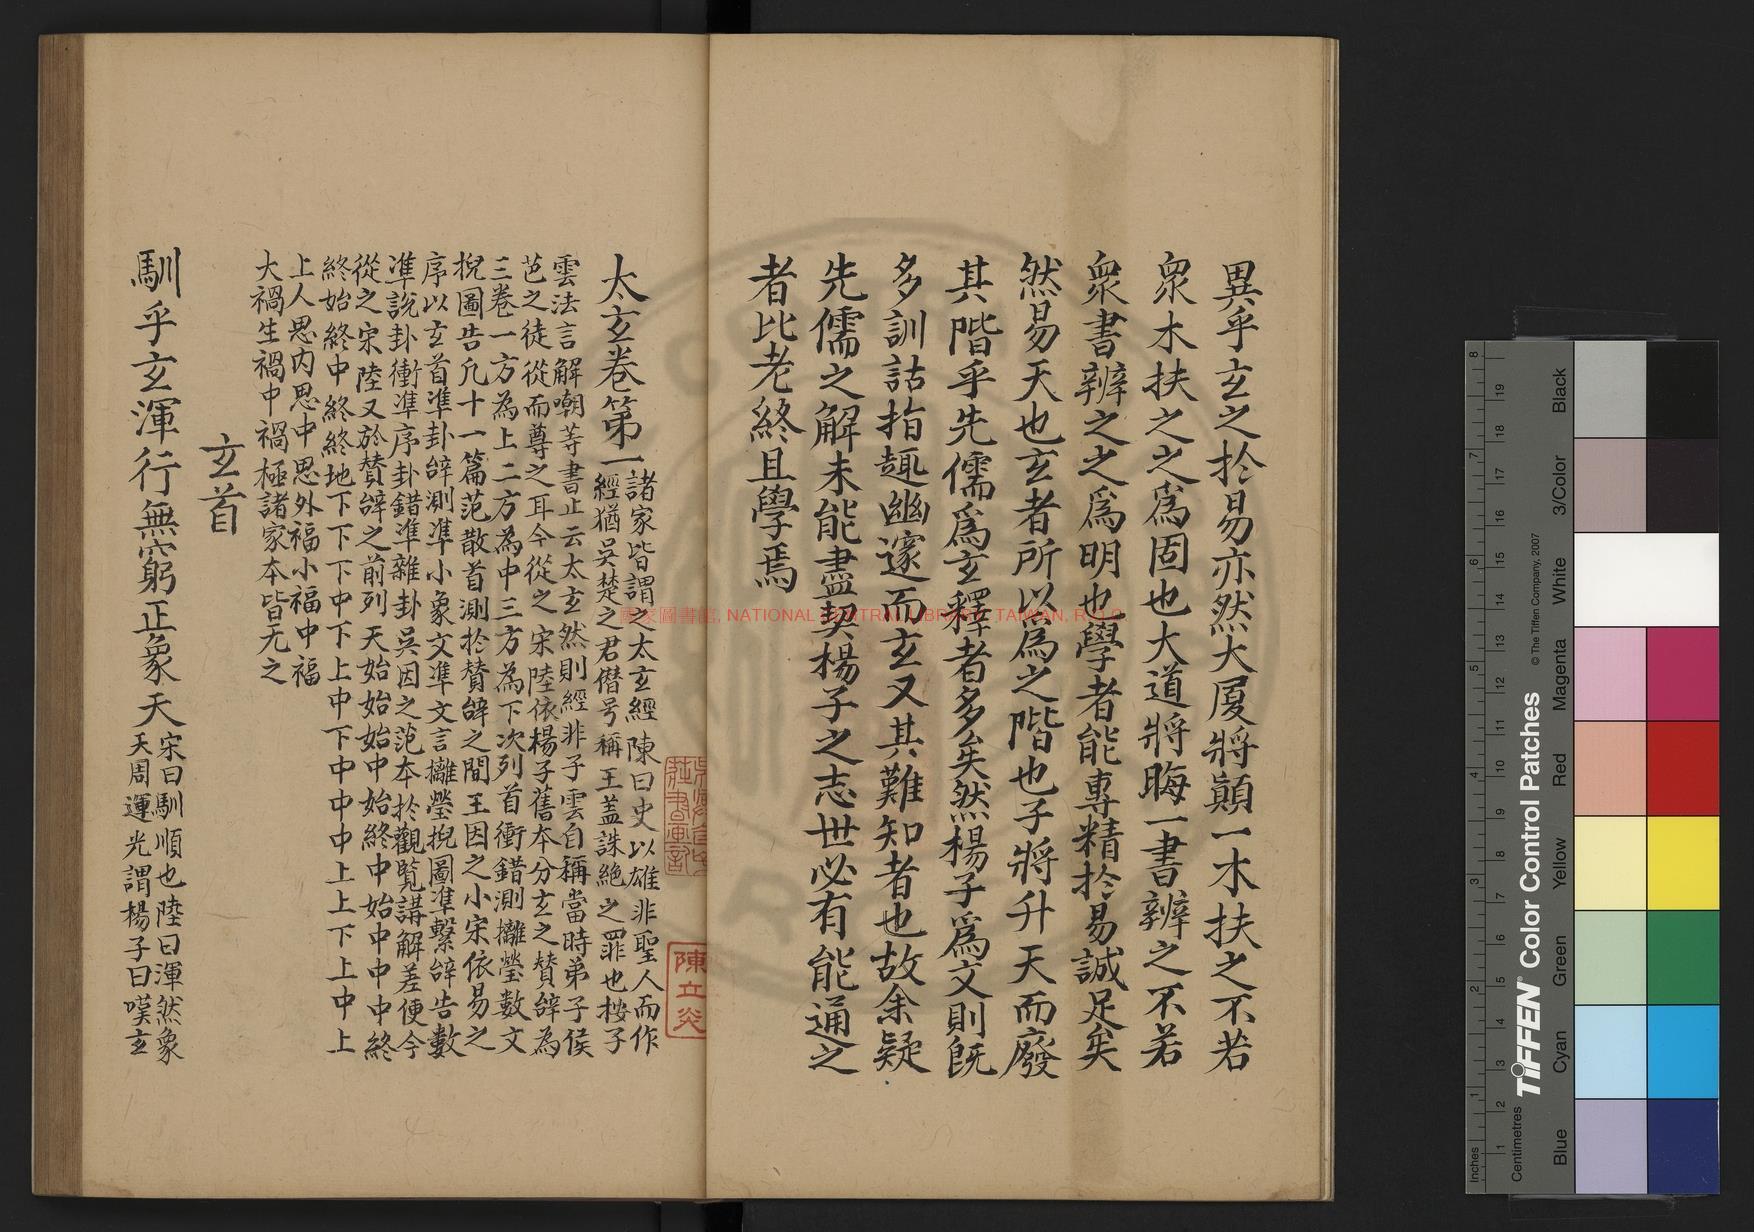 異乎玄之於易亦然大厦將顛一木扶之不若
衆木扶之之爲固也大道將晦一書辨之不若
衆書辨之之爲明也學者能專精於易誠足矣
然易天也玄者所以爲之階也子將升天而廢
其階乎先儒爲玄釋者多矣然楊子爲文則既
多訓詁指趣幽邃而玄又其難知者也故余疑
先儒之解未能盡契楊子之志世必有能通之
者比老終且學焉
太玄卷第一
諸家皆謂之太玄經陳曰史以雄非聖人而作
經猶吳楚之君僣号稱王蓋誅絶之罪也按子
雲法言解嘲等書止云太玄然則經非子雲自稱當時弟子侯
芭之徒從而尊之耳今從之宋陸依楊子舊本分玄之贊辝為
三卷一方為上二方為中三方為下次列首衝錯測攡瑩數文
掜圖告凡十一篇范散首測於贊辝之間王因之小宋依易之
序以玄首凖卦辝測凖小象文凖文言攡瑩掜圖凖繫辝告數
凖説卦衝凖序卦錯凖雜卦吳因之范本於觀覧講解差便今
從之宋陸又於贊辝之前列天始始始中始終中始中中中終
終始終中終終地下下下中下上中下中中中上上下上中上
上人思内思中思外福小福中福
大禍生禍中禍極諸家本皆无之
玄首
馴乎玄渾行無窮正象天
宋曰馴順也陸曰渾然象
天周運光謂楊子曰嘆玄
陳立炎
國家圖書館, NATIONAL CENTRAL LIBRARY, TAIWAN, R.O.C
Inches
Centimetres
TIFFEN Color Control Patches
© The Tiffen Company, 2007
Blue
Cyan
Green
Yellow
Red
Magenta
White
3/Color
Black